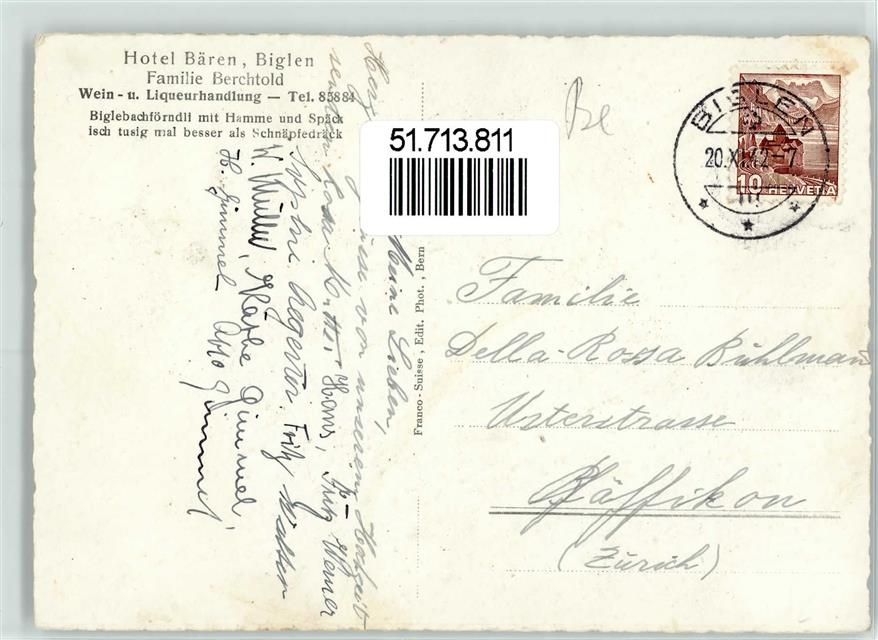 Hotel Bären, Biglen
Familie Berchtold
Wein- u. Liqueurhandlung — Tel. 85884
Biglebachförndli mit Hamme und Späck
isch tusig mal besser als Schnäpfedräck
51.713.811
Be
BIGLEN
20.XI.42-7
10 HELVETIA
Franco-Suisse, Edit. Phot., Bern
Familie
Della-Rossa Bühlmann
Usterstrasse
Pfäffikon
(Zürich)
Meine Lieben,
von unserem
senden Mutter Hans, Fritz Werner
Sophie Aegerter. Fritz
W. Müller, Käthe Gimmel,
H. Gimmel Otto Gimmel